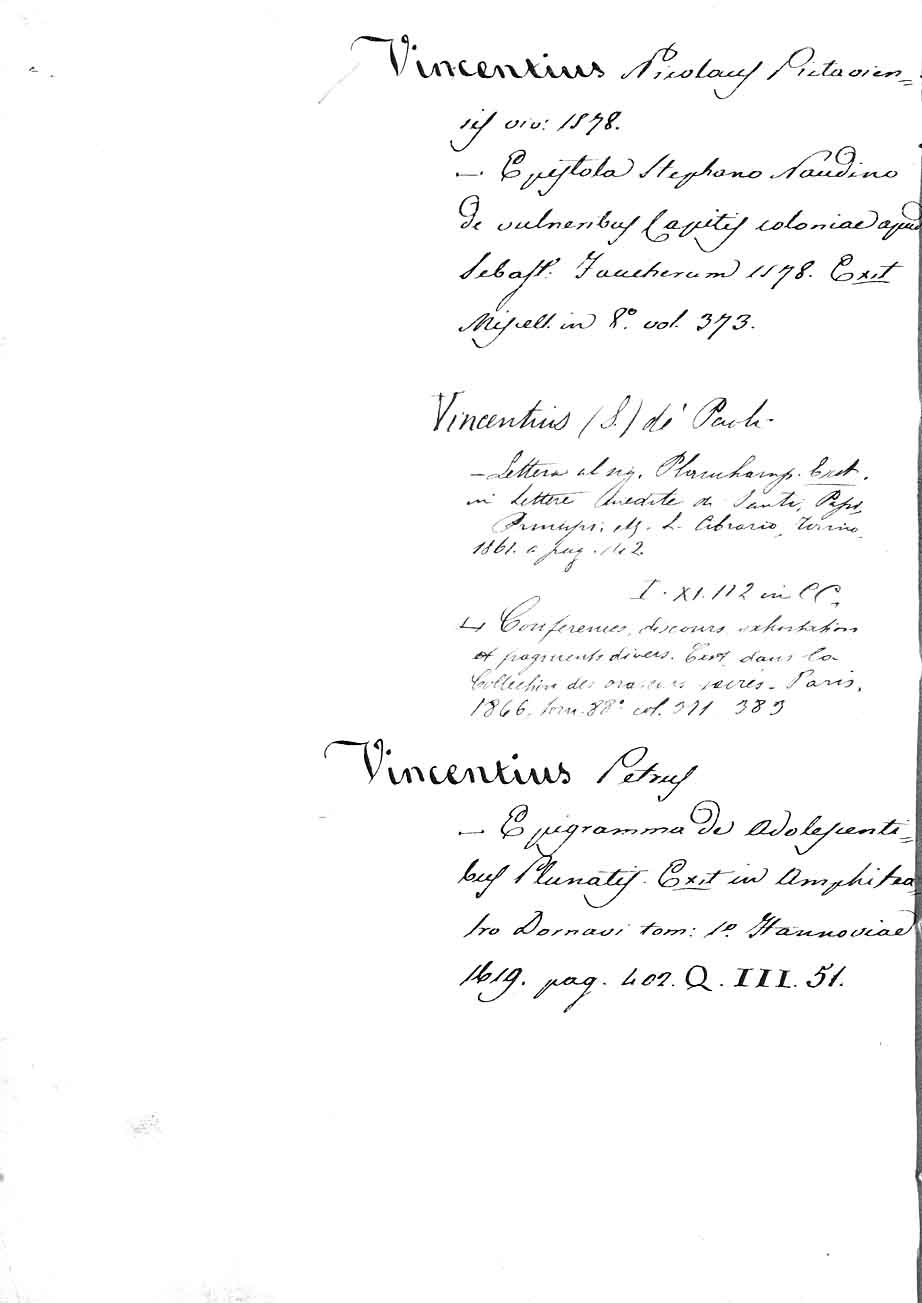 Vincentius Nicolaus Pictavien=
sis viv: 1578.
— Epistola Stephano Naudino
de vulneribus Capitis coloniae apud
Sebast: Faucherum 1578. Exit
Miscell. in 8º. vol. 373.
Vincentius (S.) de' Paoli
— Lettera al sig. Planchamp. Exit.
in Lettere inedite di Santi, Papi,
Principi, L. Cibrario, Torino,
1861. a pag. 142.
I. XI. 112 in CC.
Conferences, discours, exhortations
et fragments divers. Exit dans la
Collection des orateurs sacrés. Paris,
1866, tom. 88º col. 383
Vincentius Petrus
— Epigramma de Adolescenti=
bus Plunatis. Exit in Amphitea=
tro Dornavi tom: 1º. Hannoviae
1619. pag. 402. Q. III. 51.